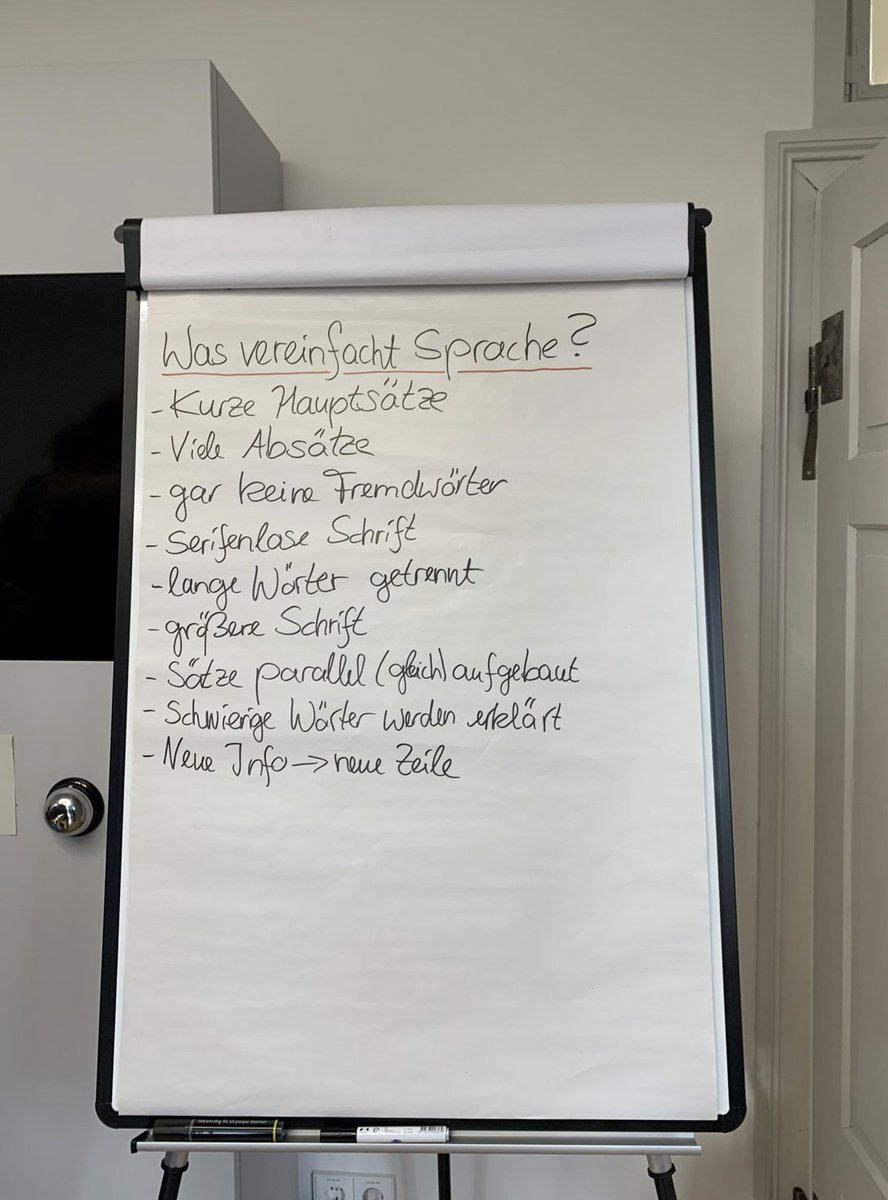 Was vereinfacht Sprache?
- Kurze Hauptsätze
- Viele Absätze
- gar keine Fremdwörter
- Serifenlose Schrift
- lange Wörter getrennt
- größere Schrift
- Sätze parallel (gleich) aufgebaut
- Schwierige Wörter werden erklärt
- Neue Info → neue Zeile